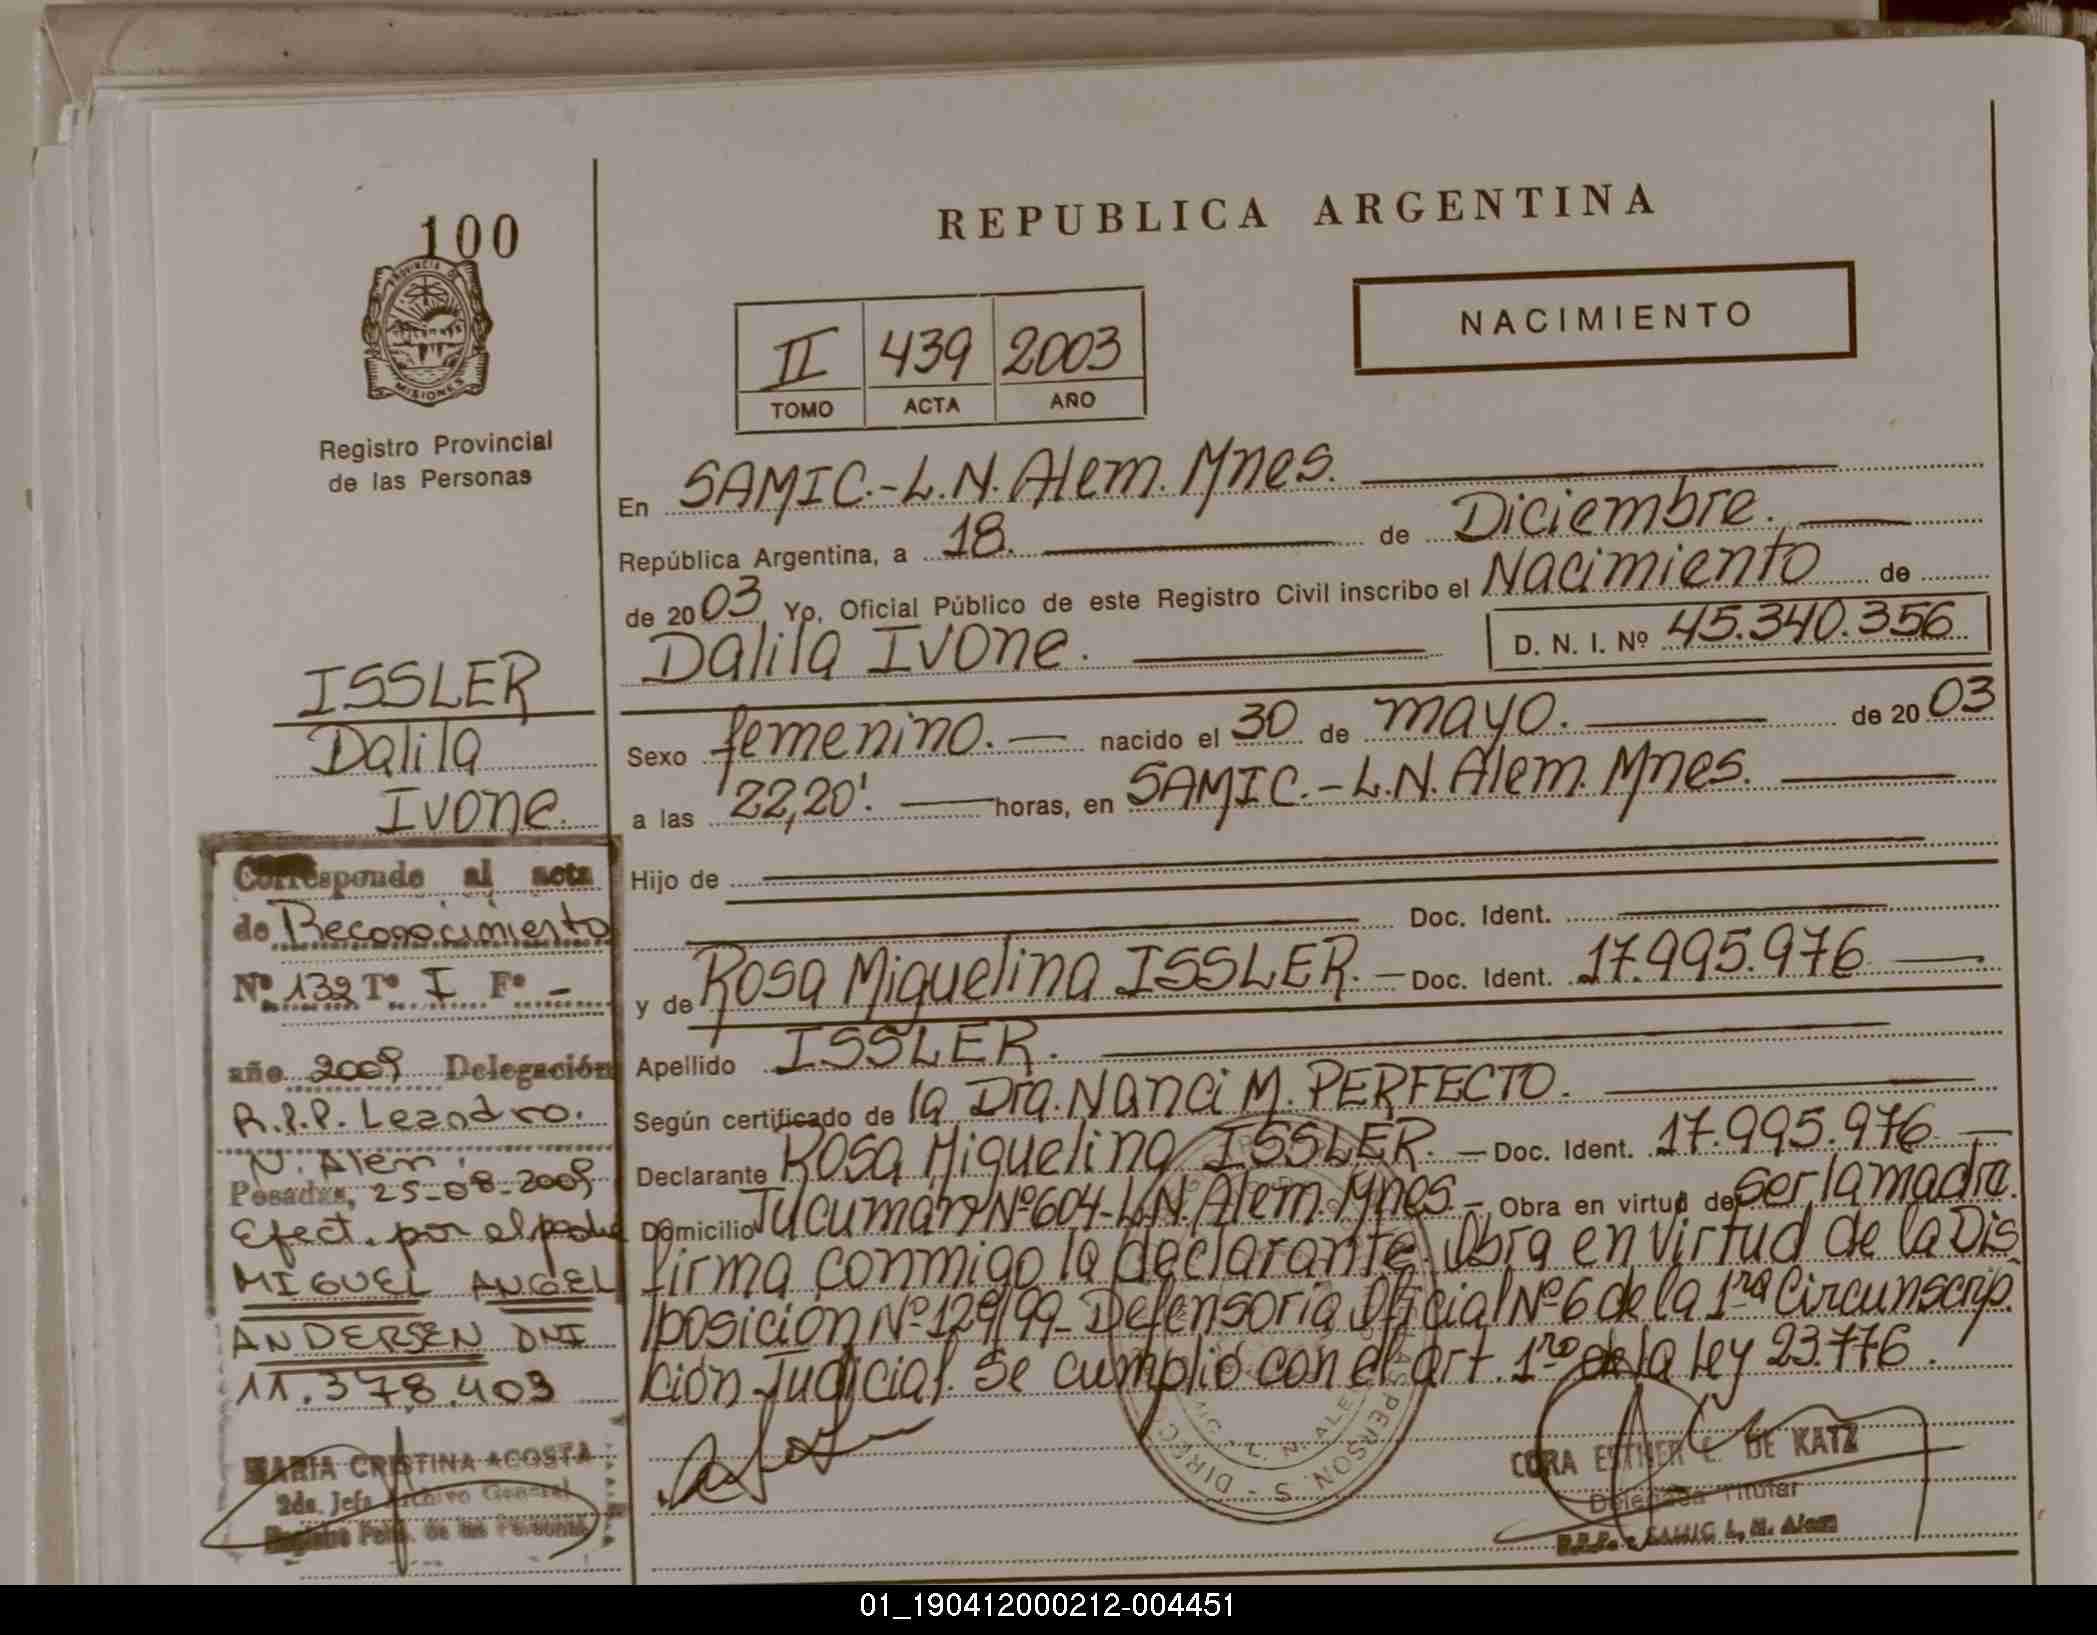 100
PROVINCIA DE
MISIONES
Registro Provincial
de las Personas
ISSLER
Dalila
Ivone.
Corresponde al acta
de Reconocimiento
Nº 139 Tº I Fº -
año 2009 Delegación
R.P.P. Leandro.
N. Alem.
Posadas, 25-08-2009
Efect. por el padre
MIGUEL ANGEL
ANDERSEN DNI
11.378.403
MARIA CRISTINA ACOSTA
2da. Jefa Archivo General
Registro de las Personas
REPUBLICA ARGENTINA
NACIMIENTO
II 439 2003
TOMO ACTA AÑO
En SAMIC.-L.N. Alem. Mnes.
República Argentina, a 18. de Diciembre.
de 2003 Yo, Oficial Público de este Registro Civil inscribo el Nacimiento de
Dalila Ivone. D. N. I. Nº 45.340.356
Sexo femenino. nacido el 30 de mayo. de 2003
a las 22,20'. horas, en SAMIC.-L.N. Alem. Mnes.
Hijo de
Doc. Ident.
y de Rosa Miguelina ISSLER. Doc. Ident. 17.995.976
Apellido ISSLER.
Según certificado de la Dra. Nanci M. PERFECTO.
Declarante Rosa Miguelina ISSLER. Doc. Ident. 17.995.976
Domicilio Tucuman Nº604-L.N. Alem. Mnes. Obra en virtud de ser la madre.
firma conmigo la declarante. Obra en virtud de la Dis
posición Nº129/99- Defensoria Oficial Nº6 de la 1ra Circunscrip
ción Judicial. Se cumplió con el art. 1ro de la ley 23.776.
CORA ESTHER L. DE KATZ
Delegada Titular
R.P.P. - SAMIC L. N. Alem
01_190412000212-004451